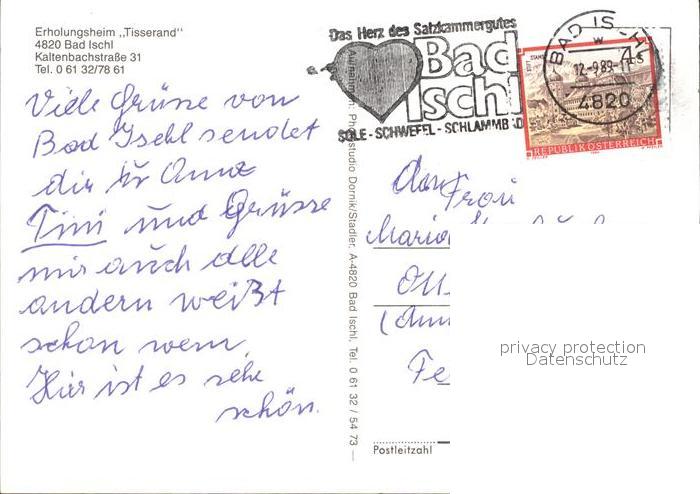 Erholungsheim „Tisserand"
4820 Bad Ischl
Kaltenbachstraße 31
Tel. 0 61 32/78 61
Viele Grüsse von
Bad Ischl sendet
dir
Tini und Grüsse
mir auch alle
andern weißt
schon wem,
Hier ist es sehr
schön.
Das Herz des Salzkammergutes
Bad
Ischl
SOLE - SCHWEFEL - SCHLAMMBAD
BAD ISCHL
12.-9.89
4820
REPUBLIK ÖSTERREICH
Photostudio Dornik/Stadler, A-4820 Bad Ischl, Tel. 0 61 32 / 54 73
Frau
Maria
privacy protection
Datenschutz
Postleitzahl